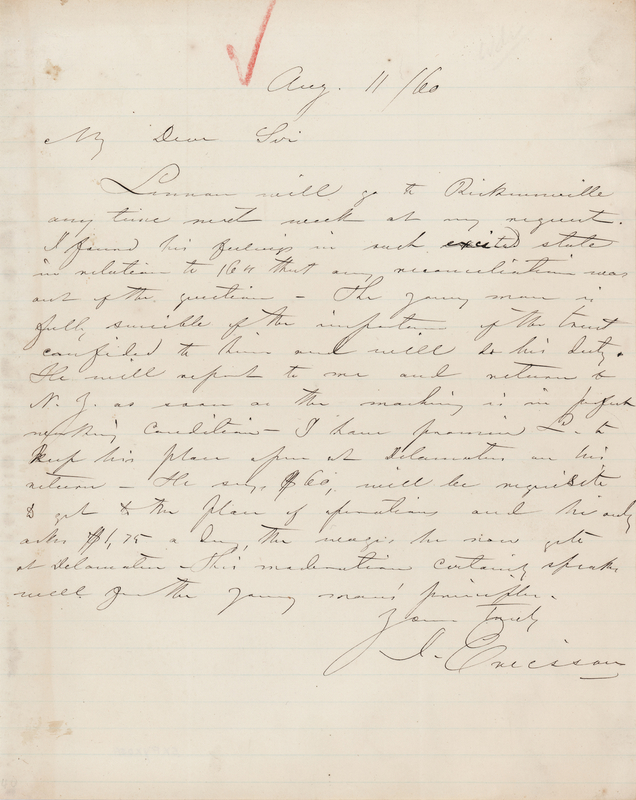 Aug. 11 /60
My Dear Sir
Linnan will go to
any time next week at my request.
I found his feelings in such excited state
in relation to that any reconciliation was
out of the question – The young man is
fully sensible of the importance of the trust
confided to him and will do his duty.
He will report to me and return to
N. Y. as soon as the machine is in perfect
working condition – I have promised L. to
keep his place open at Delamater on his
return – He says $60, will be requisite
to get to the place of operations and he only
asks $1,75 a day, the wages he now gets
at Delamater – This moderation certainly speaks
well for the young man's principles.
Yours truly
J. Ericsson